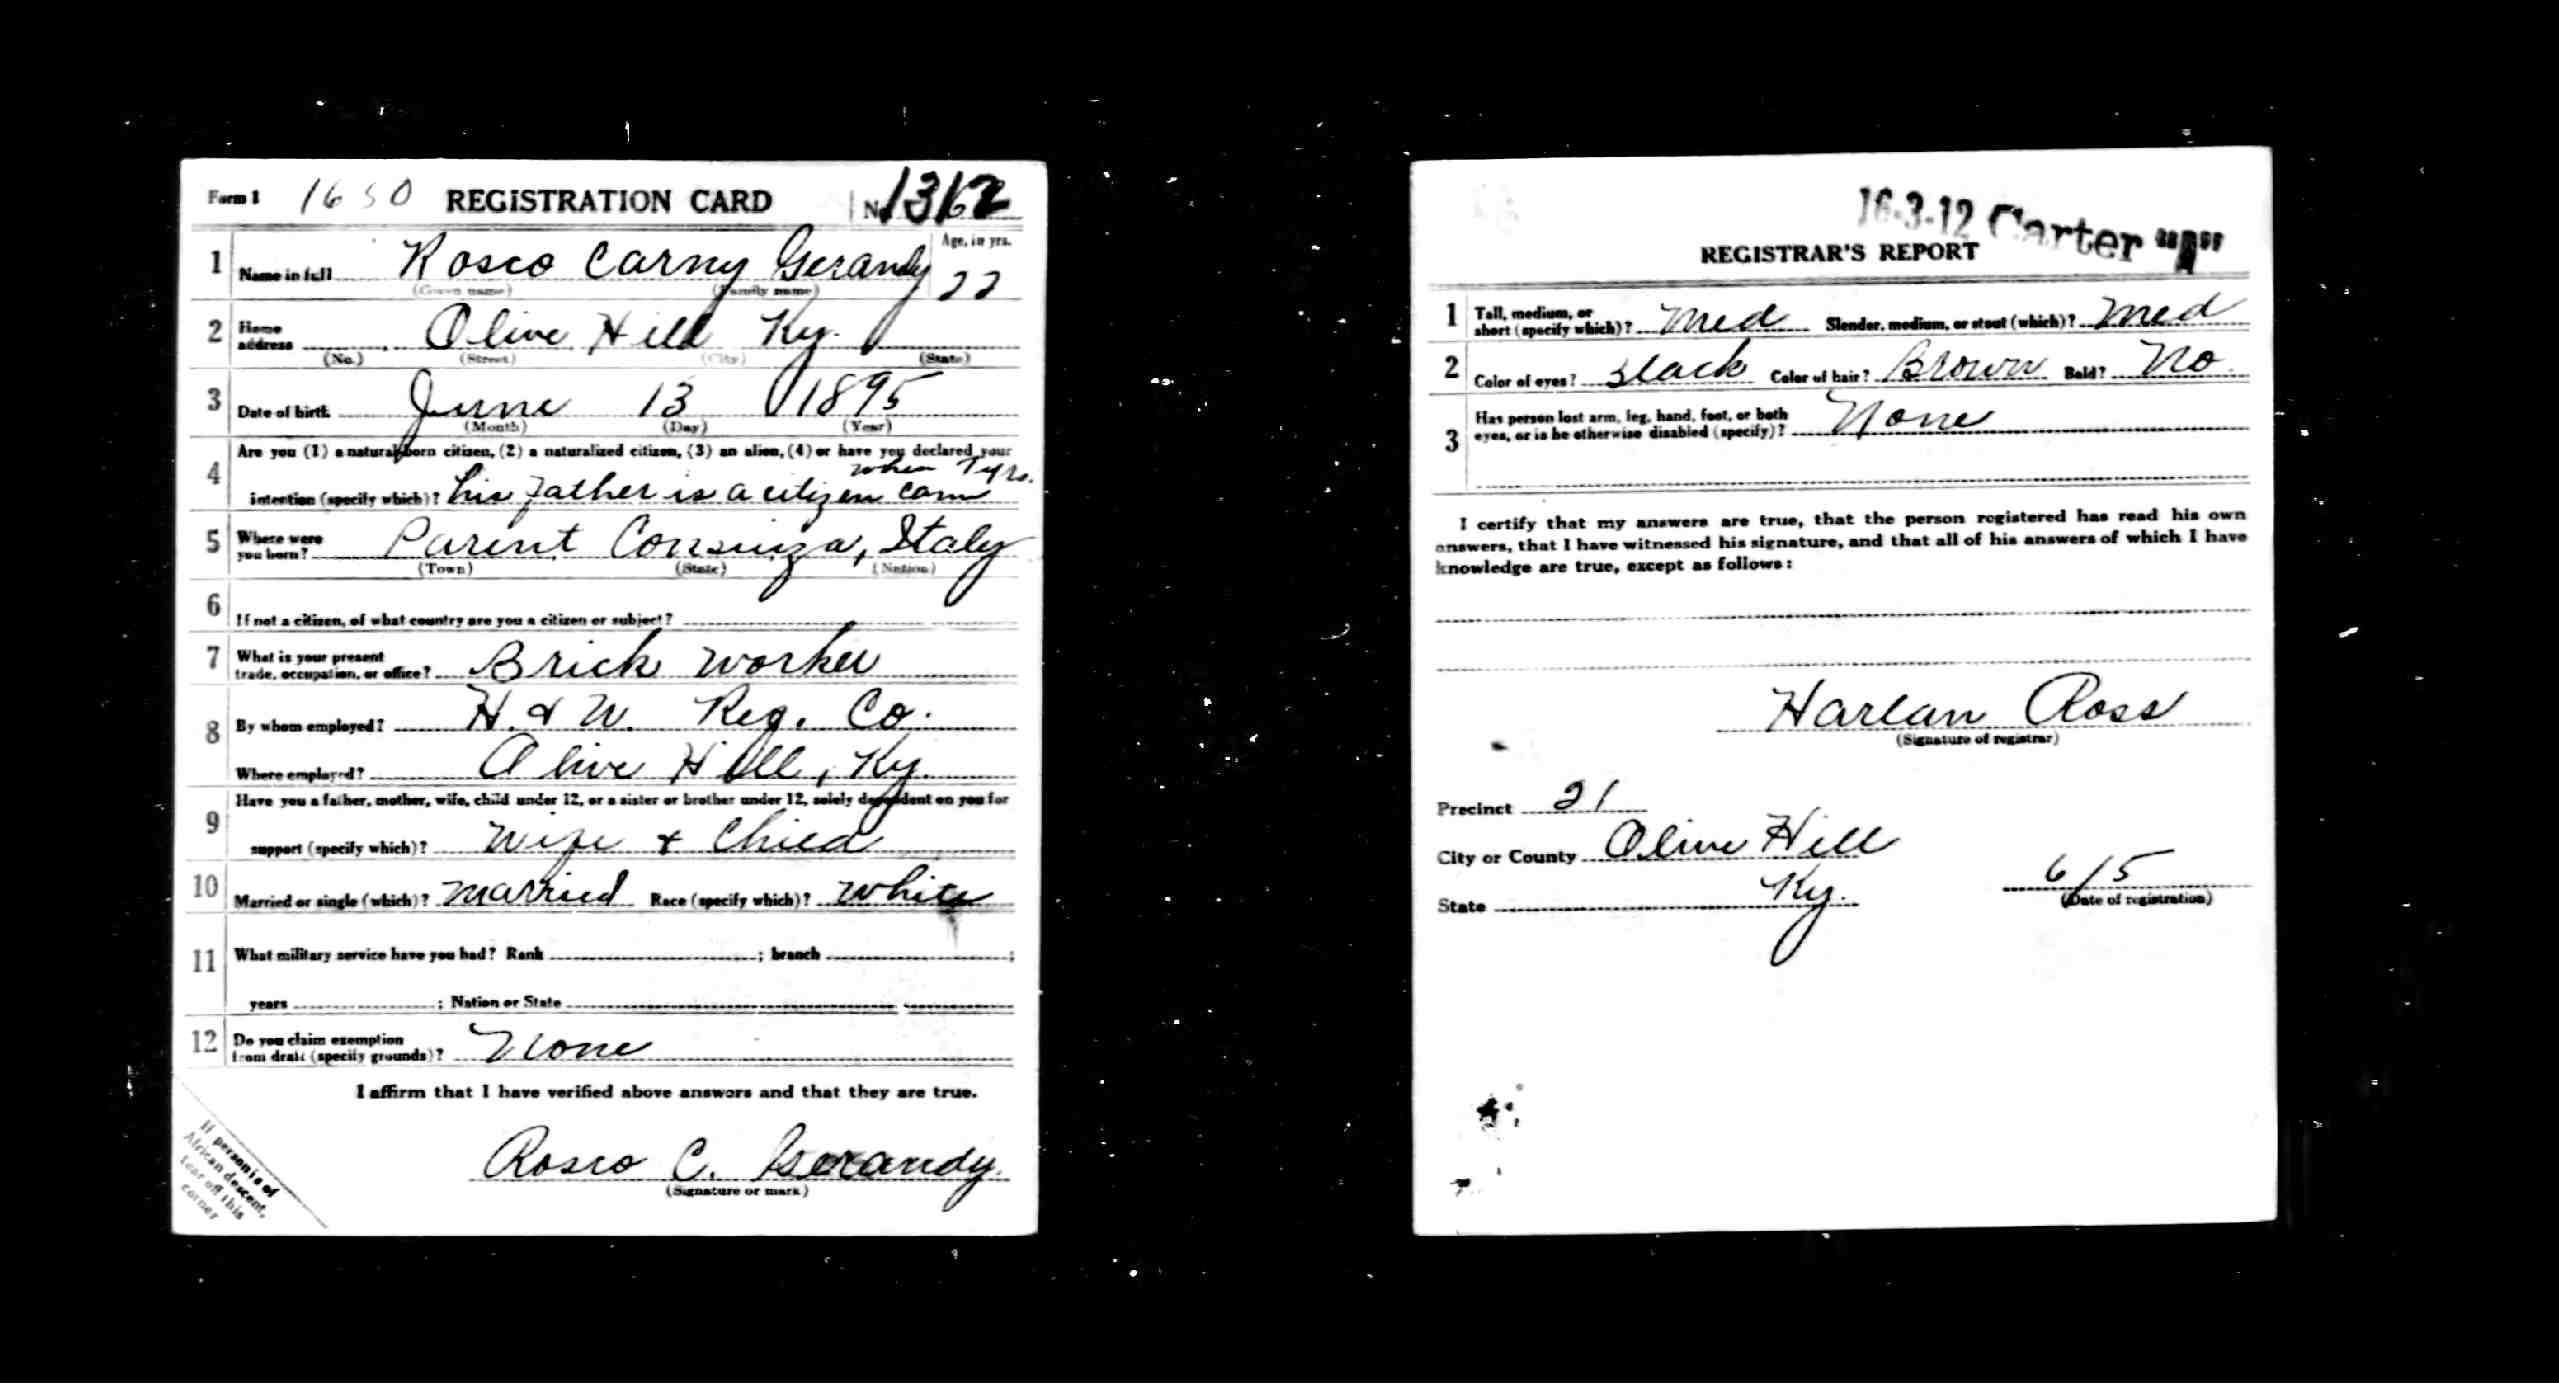 Form 1 1650 REGISTRATION CARD No. 1312
1 Name in full Rosco Carny Gerandy Age, in yrs. 22
(Given name) (Family name)
2 Home address Olive Hill Ky.
(No.) (Street) (City) (State)
3 Date of birth June 13 1895
(Month) (Day) (Year)
4 Are you (1) a natural-born citizen, (2) a naturalized citizen, (3) an alien, (4) or have you declared your
when yrs.
intention (specify which)? his father is a citizen
5 Where were you born? Parent Consinza, Italy
(Town) (State) (Nation)
6 If not a citizen, of what country are you a citizen or subject?
7 What is your present trade, occupation, or office? Brick worker
8 By whom employed? H. & W. Reg. Co.
Where employed? Olive Hill, Ky.
9 Have you a father, mother, wife, child under 12, or a sister or brother under 12, solely dependent on you for
support (specify which)? Wife + Child
10 Married or single (which)? Married Race (specify which)? White
11 What military service have you had? Rank ; branch ;
years ; Nation or State
12 Do you claim exemption from draft (specify grounds)? None
I affirm that I have verified above answers and that they are true.
Rosco C. Gerandy
(Signature or mark)
If person is of
African descent,
tear off this
corner
16-3-12 Carter "A"
REGISTRAR'S REPORT
1 Tall, medium, or short (specify which)? Med Slender, medium, or stout (which)? Med
2 Color of eyes? Black Color of hair? Brown Bald? No
3 Has person lost arm, leg, hand, foot, or both
eyes, or is he otherwise disabled (specify)? None
I certify that my answers are true, that the person registered has read his own
answers, that I have witnessed his signature, and that all of his answers of which I have
knowledge are true, except as follows:
Harlan Ross
(Signature of registrar)
Precinct 21
City or County Olive Hill
State Ky. 6/5
(Date of registration)